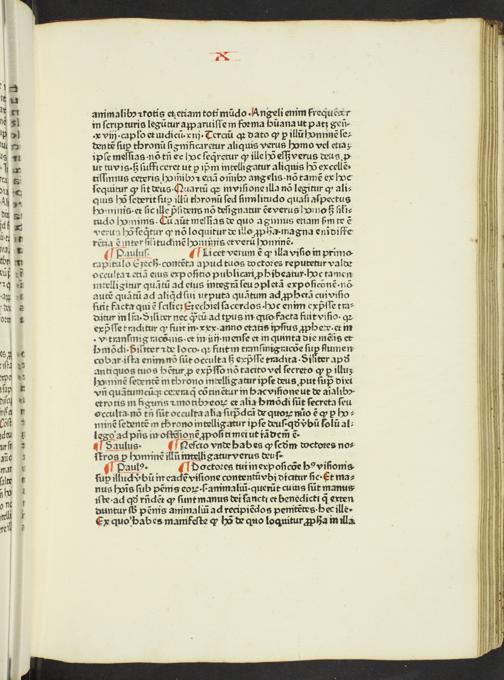 X
animalibꝰ ⁊ rotis et etiam toti mūdo. Angeli enim frequēter
in scripturis legūtur apparuisse in forma hūana ut patꝫ geñ.
xviii. capło et iudicū. xiii. Terciū ꝙ dato ꝙ ꝑ illū hominē se-
dentē suꝑ thronū significaretur aliquis verus homo vel etiā
ipse messias. nō tñ ex hoc seqretur ꝙ ille hō esset verus deus, ꝓ
ut tu vis. sꝫ sufficeret ut ꝑ ipm intelligatur aliquis hō excellē-
tissimus ceteris hoībus et etiā oībꝰ angelis. nō tamē ex hoc
sequitur ꝙ sit deus. Quartū ꝙ in visione illa nō legitur ꝙ ali-
quis hō sederit suꝑ illū thronū sed similitudo quasi aspectus
hominis. et sic ille p̄sidens nō designatur eē verus homo sꝫ simi-
litudo hominis. Cū aūt messias de quo agimus etiam sm te ē
verus hō sequitur ꝙ nō loquitur de illo, ꝓpħa. magna enī diffe-
rētia ē inter silitudinē hominis et verū hominē.
¶ Paulus. ¶ Licet verum ē ꝙ illa visio in primo
capitulo Ezech. contēta apud tuos doctores reputetur valde
occulta et etiā eius expositio publicari, ꝓhibeatur. hoc tamen
intelligitur quātū ad eius integrā seu ꝯpletā expositionē. nō
autē quātū ad aliqđ sui utputa quantum ad, ꝓpħetā cui visio
fuit facta qui ē scilicꝫ Ezechiel sacerdos. hoc enim exp̄sse tra-
ditur in lrā. Siliter nec qꝫtū ad tp̄us in quo facta fuit visio. qꝛ
exp̄sse traditur ꝙ fuit in. xxx. anno etatis ipsius, ꝓphete. et in
. v. transmigrationis. et in iiii. mense et in quinta die mēsis et
hmōdi. Siliter ē de loco. qꝛ fuit in transmigratiōe suꝑ flumen
cobar. ista enim nō sūt occulta sꝫ exp̄sse tradita. Siliter apđ
antiquos tuos hētur, ꝓ exp̄sso nō tacito vel secreto ꝙ ꝑ illū
hominē sedentē in throno intelligatur ipse deus, ꝓut supͣ dixi
vñ quātumcūqꝫ cetera q̄ cōtinētur in hac visione ut de aīalibꝰ
et rotis ⁊ figuris ⁊ motibꝰ eoꝝ et alia hmōdi sūt secreta seu
occulta. nō tñ sūt occulta alia supͣdcā de quoꝝ nūo ē ꝙ ꝑ ho-
minē sedentē in throno intelligatur ipse deus. qđ vꝫbū solū al-
lego ad pñs in ostēsionē, ꝓpositi mei ut iā dcm ē.
¶ Saulus. ¶ Nescio unde habes ꝙ scđm doctores no-
stros ꝑ hominē illū intelligatur verus deus.
¶ Paulꝰ. ¶ Doctores tui in expositiōe hꝰ visionis
suꝑ illud vꝫbū in eadē visione contentū vbi dicitur sic. Et ma-
nus hoīs sub pēnis eoꝝ. s. animaliū. querūt cuius sūt manus
iste. ad qđ rñdēt ꝙ sunt manus dei sancti et benedicti q̄ exten-
duntur sb pēnis animaliū ad recipiēdos penitētes. hec ille.
Ex quo habes manifeste ꝙ hō de quo loquitur, ꝓpħa in illa